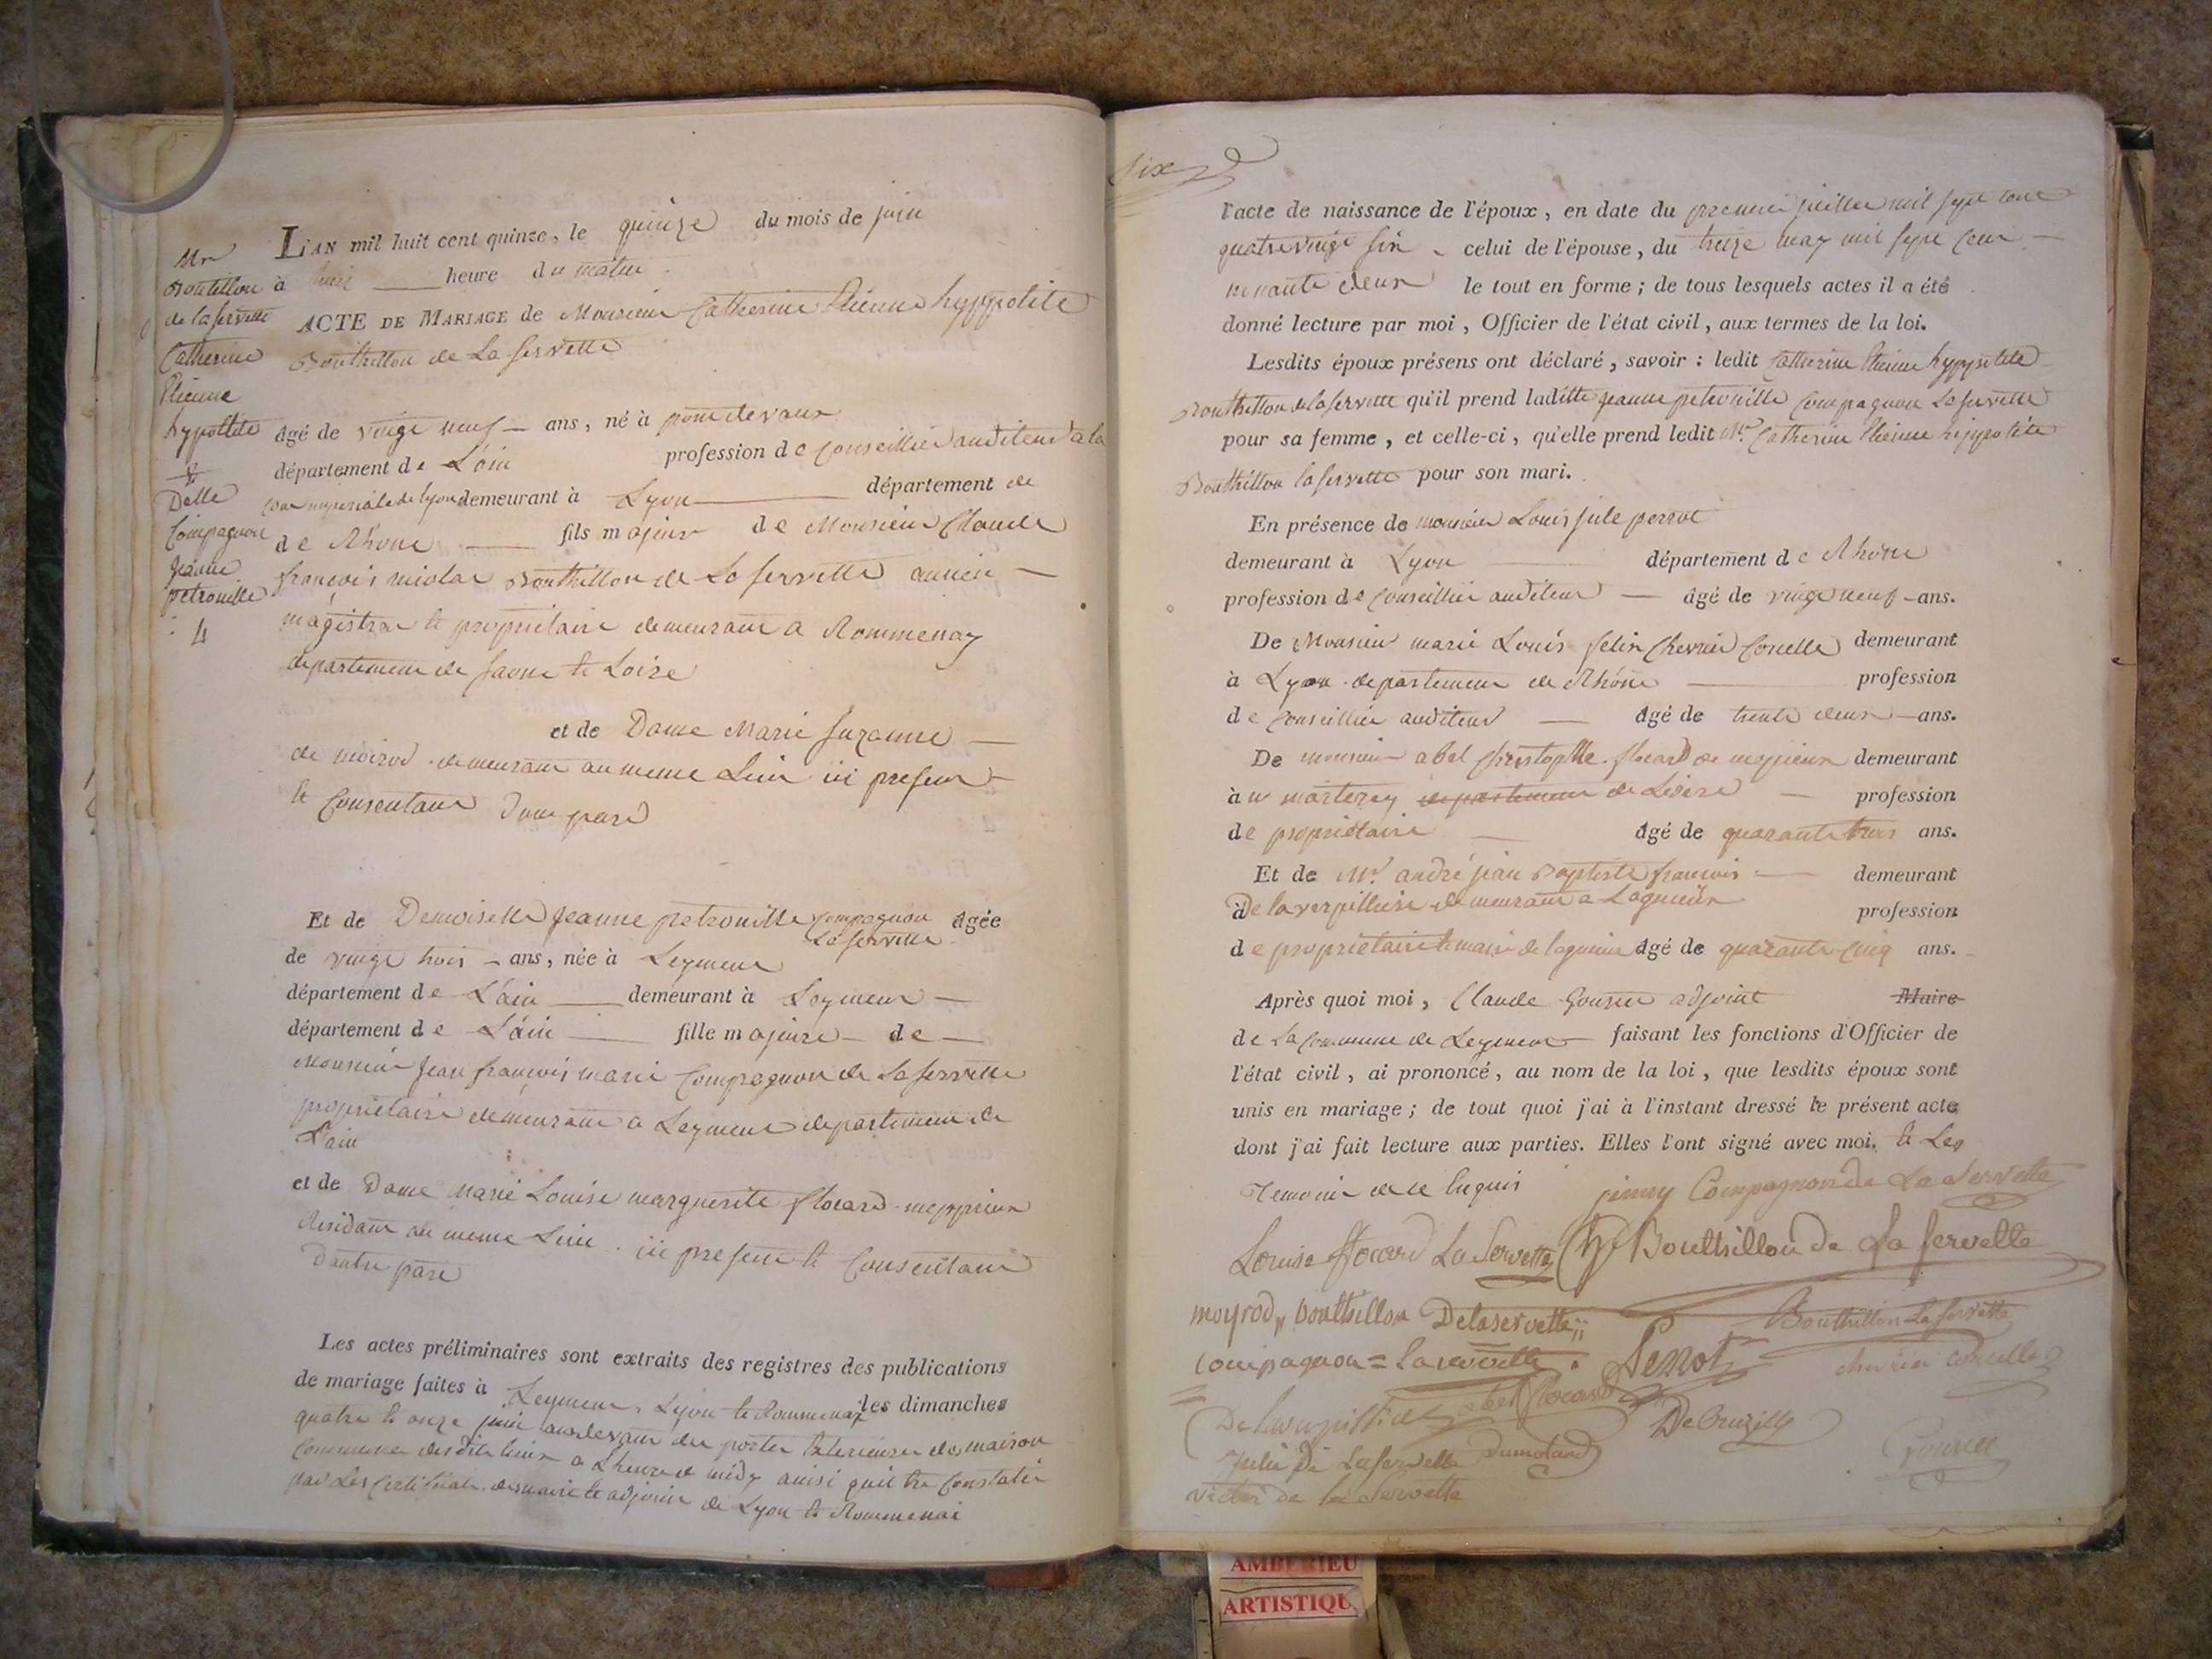 Mr
Bouthillon
de la servette
Catherine
Etienne
hypollite
&
Delle
Compagnon
jeanne
petronille
4
L'AN mil huit cent quinze, le quinze du mois de juin
à huit heure du matin.
ACTE DE MARIAGE de Monsieur Catherine Etienne hyppolite
Bouthillon de La servette
âgé de vingt neuf ans, né à pont de vaux
département de L'ain profession de conseillier auditeur a la
cour imperiale de lyon demeurant à Lyon département de
de Rhône fils majeur de Monsieur Claude
françois nicolas Bouthillon de La servette ancien
magistrat et proprietaire demeurant a Rommenay
departement de saone et Loire
et de Dame Marie suzanne
de moirod demeurant au meme Lieu ici present
et Consentant d'une part
Et de Demoiselle jeanne petronille Compagnon âgée
La servette
de vingt trois ans, née à Leyment
département de L'ain demeurant à Leyment
département de L'ain fille majeure de
Monsieur jean françois marie Compagnon de La servette
proprietaire demeurant a Leyment departement de
L'ain
et de Dame Marie Louise marguerite flocard meppieux
Residant au meme Lieu. ici present et Consentant
D'autre part
Les actes préliminaires sont extraits des registres des publications
de mariage faites à Leyment, Lyon et Rommenay les dimanches
quatre et onze juin audevant des portes Exterieures de maison
Commune desdits lieux a L'heure de midy ainsi quil Est Constaté
par Les Certificats des maire et adjoint de Lyon et Rommenai
six
l'acte de naissance de l'époux, en date du premier juillet mil sept cent
quatre vingt six celui de l'épouse, du treize may mil sept cent
nonante deux le tout en forme ; de tous lesquels actes il a été
donné lecture par moi, Officier de l'état civil, aux termes de la loi.
Lesdits époux présens ont déclaré, savoir : ledit Catherine Etienne hyppolite
Bouthillon de la servette qu'il prend laditte jeanne petronille Compagnon La servette
pour sa femme, et celle-ci, qu'elle prend ledit Mr Catherine Etienne hyppolite
Bouthillon la servette pour son mari.
En présence de monsieur Louis jule perrot
demeurant à Lyon département de Rhône
profession de Conseillier auditeur âgé de vingt neuf ans.
De Monsieur marie Louis felix Chevrier Corcelle demeurant
à Lyon departement de Rhône profession
de Conseillier auditeur âgé de trente deux ans.
De monsieur abel christophe flocard de meppieux demeurant
à departement de Lisère profession
de proprietaire âgé de quarante trois ans.
Et de Mr andré jean Baptiste françois demeurant
à De la verpilliere demeurant a Lagnieu profession
de proprietaire et maire de lagnieu âgé de quarante cinq ans.
Après quoi moi, Claude adjoint Maire
de La Commune de Leyment faisant les fonctions d'Officier de
l'état civil, ai prononcé, au nom de la loi, que lesdits époux sont
unis en mariage ; de tout quoi j'ai à l'instant dressé le présent acte
dont j'ai fait lecture aux parties. Elles l'ont signé avec moi. et Les
Temoins de ce Enquis jenny Compagnon de La Servette
Louise flocard La Servette Bouthillon de La servette
moyrod Bouthillon Delaservette
Bouthillon La servette
Compagnon = Laservette Perrot chevrier corcelle
abel flocard
Julie De Laservette Dumolard
victor de la Servette
AMBERIEU
ARTISTIQU